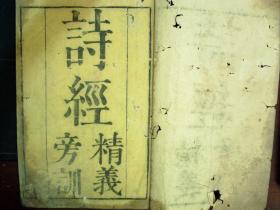 詩經
精義
旁訓